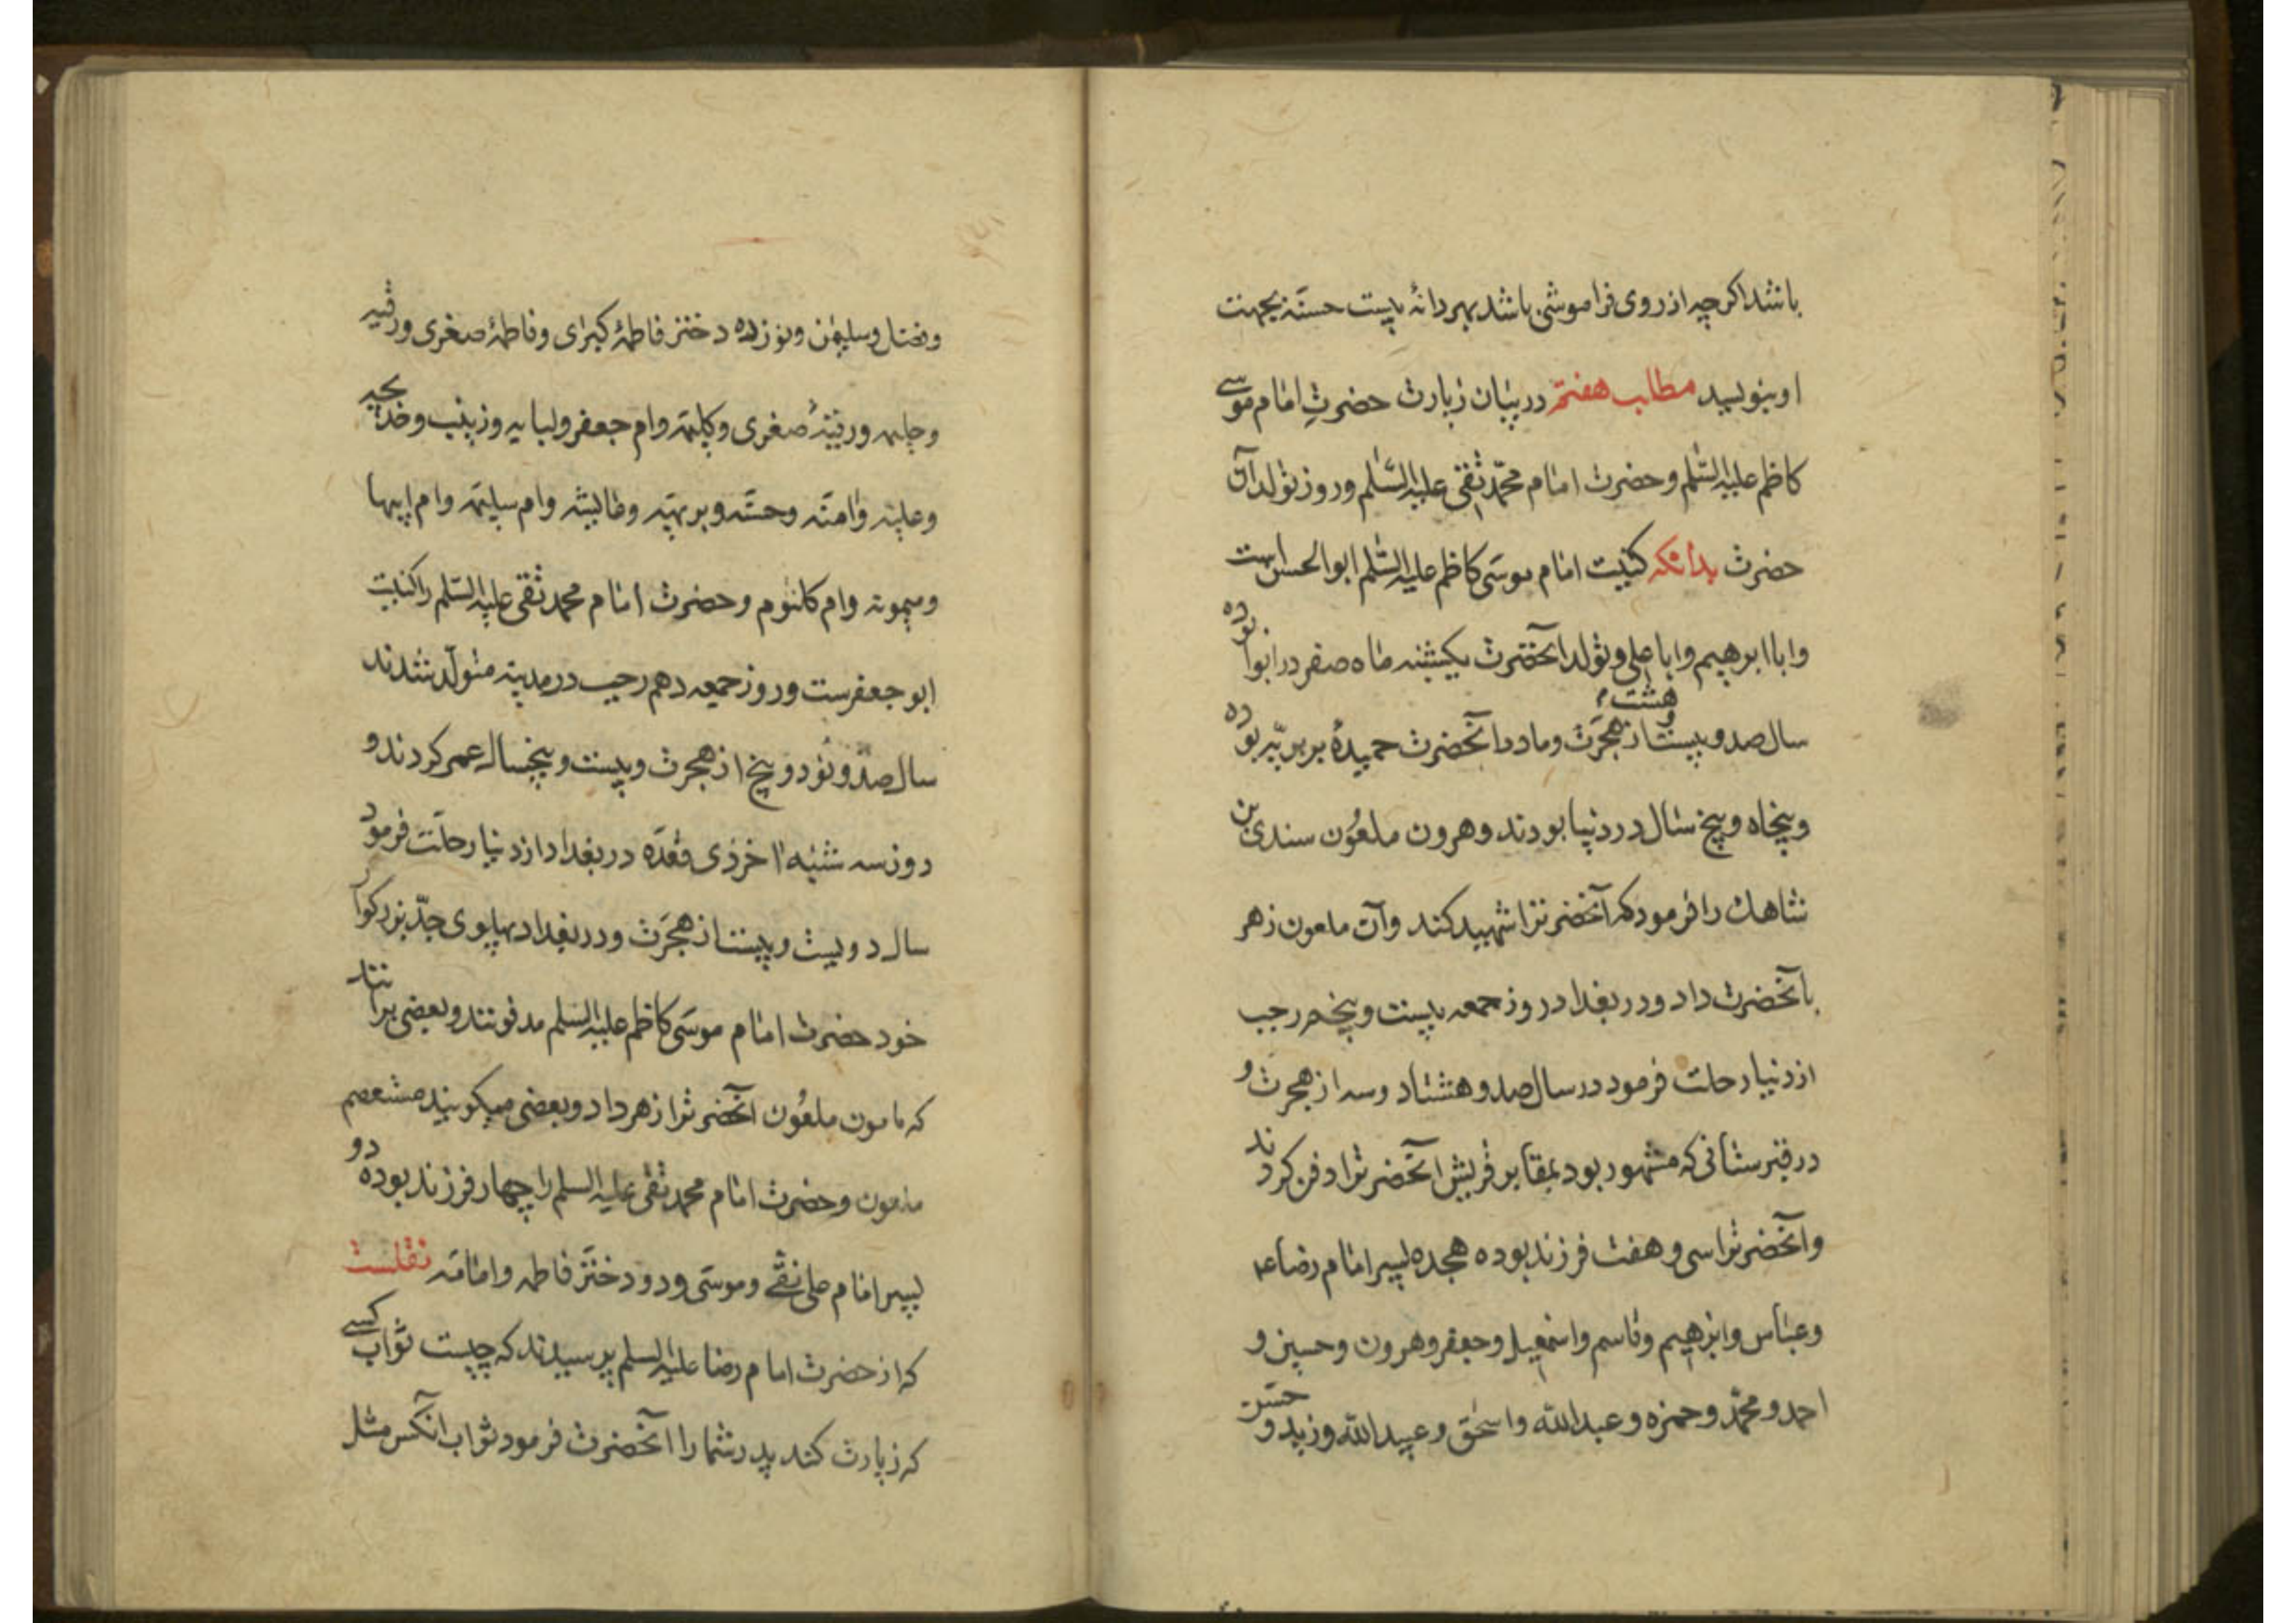 باشد اکرچه از روی فراموشی باشد بهر دانهٔ بیست حسنه بجهت
او بنویسید مطلب هفتم در بیان زیارت حضرتِ امام موسی
کاظم علیه السّلم و حضرت امام محمّد تقی علیه السّلم و روز تولد آن
حضرت بدانکه کنیت امام موسی کاظم علیه السّلم ابو الحسن است
و ابا ابرهیم و ابا علی و تولد آنحضرت یکشنبه ماه صفر در ابوا بوده
سال صد و بیست و هشت از هجرَت و مادر آنحضرت حمیدهٔ بربریّه بوده
و پنجاه و پنج سال در دنیا بودند و هرون ملعُون سندی بن
شاهک را فرمود که آنحضرترا شهید کند و آن ملعون زهر
بآنحضرت داد و در بغداد روز جمعه بیست و پنجم رجب
از دنیا رحلت فرمود در سال صد و هشتاد و سه از هجرت و
در قبرستانی که مشهور بود بمقابر قریش آنحضرترا دفن کردند
و آنحضرترا سی و هفت فرزند بوده هجده پسر امام رضا ع
و عباس و ابرهیم و قاسم و اسمعیل و جعفر و هرون و حسین و
احمد و محمّد و حمزه و عبدالله و اسحق و عبیدالله و زید و حسن
و فضل و سلیمن و نوزده دختر فاطمهٔ کبرای و فاطمهٔ صغری و رقیه
و حلیمه و رقیهٔ صغری و کلیمه و ام جعفر و لبابه و زینب و خدیجه
و علیه و امنه و حسنه و بریهه و عایشه و ام سلیمه و ام ابیها
و میمونه و ام کلثوم و حضرت امام محمد تقی علیه السّلم را کنیت
ابو جعفرست و روز جمعه دهم رجب در مدینه متولّد شدند
سال صد و نُود و پنج از هجرت و بیست و پنجسال عمر کردند و
روز سه شنبه اخر ذی قعدَه در بغداد از دنیا رحلَت فرمود
سال دویست و بیست از هجرَت و در بغداد بپهلوی جدّ بزرکوار
خود حضرت امام موسی کاظم علیه السلم مدفونند و بعضی برانند
که مامون ملعُون آنحضرترا زهر داد و بعضی میکویند معتصم
مامون و حضرت امام محمد تقی علیه السلم را چهار فرزند بوده دو
پسر امام علی نقی و موسی و دو دختَر فاطمه و امامه نقلست
که از حضرت امام رضا علیه السلم پرسیدند که چیست ثواب کسی
که زیارت کند پدر شما را آنحضرت فرمود ثواب آنکس مثل